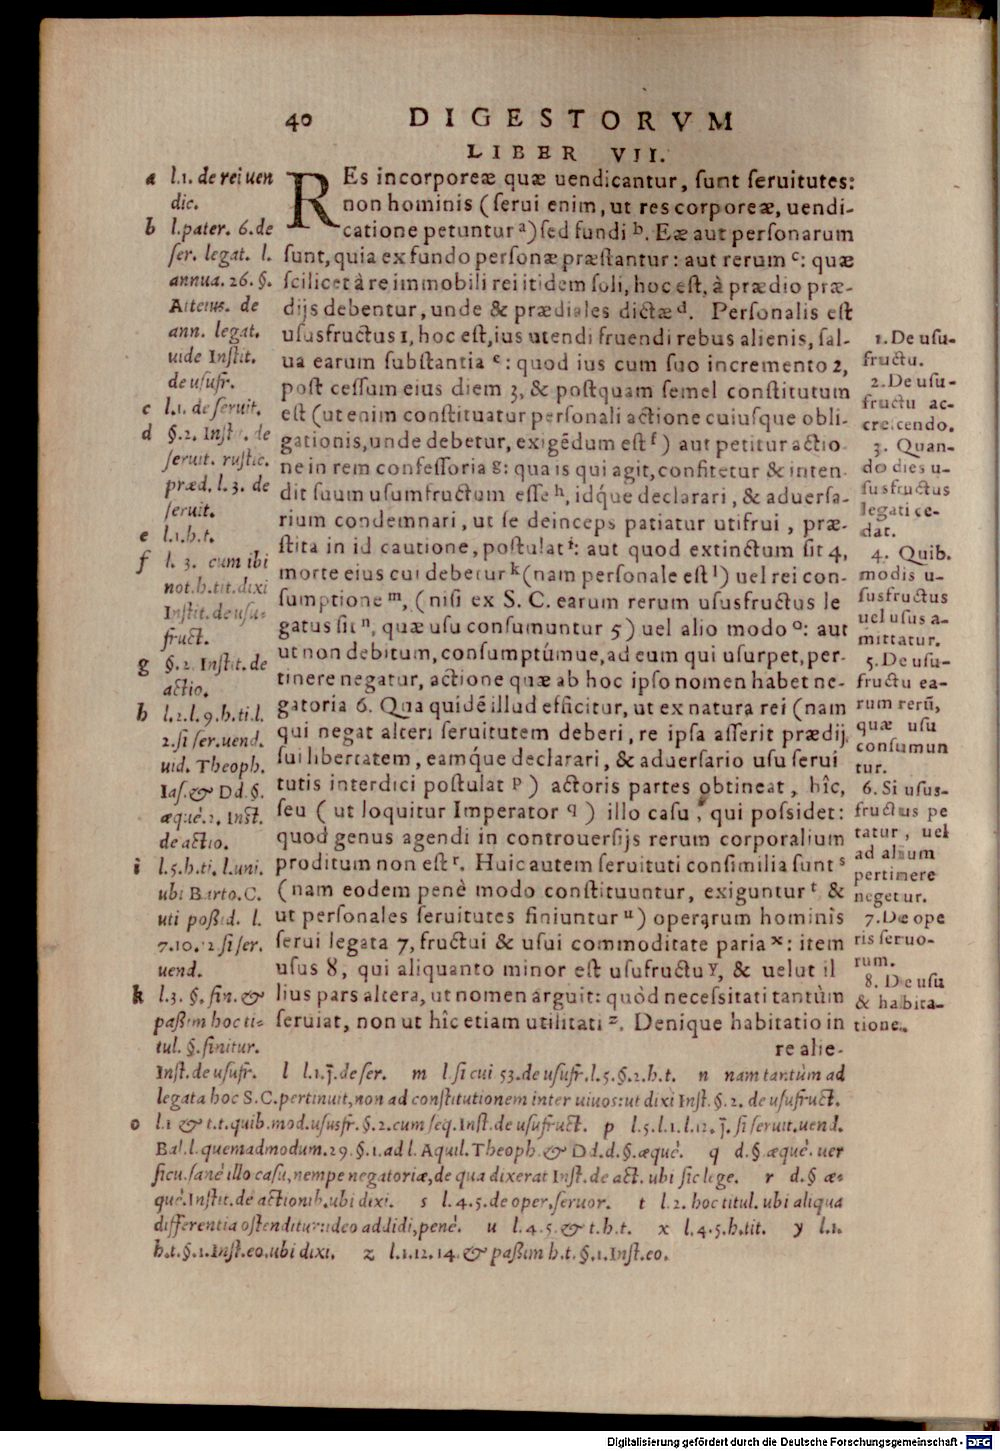 40 DIGESTORVM
LIBER VII.
REs incorporeæ quæ uendicantur, ſunt ſeruitutes:
non hominis (ſerui enim, ut res corporeæ, uendi-
catione petuntur a) ſed fundi b. Eæ aut perſonarum
ſunt, quia ex fundo perſonæ præſtantur: aut rerum c: quæ
ſcilicet à re immobili rei itidem ſoli, hoc eſt, à prædio præ-
dijs debentur, unde & prædiales dictæ d. Perſonalis eſt
uſusfructus 1, hoc eſt, ius utendi fruendi rebus alienis, ſal-
ua earum ſubſtantia e: quod ius cum ſuo incremento 2,
poſt ceſſum eius diem 3, & poſtquam ſemel conſtitutum
eſt (ut enim conſtituatur perſonali actione cuiuſque obli-
gationis, unde debetur, exigẽdum eſt f) aut petitur actio
ne in rem confeſſoria g: qua is qui agit, confitetur & inten-
dit ſuum uſumfructum eſſe h, idq́ue declarari, & aduerſa-
rium condemnari, ut ſe deinceps patiatur utifrui, præ-
ſtita in id cautione, poſtulat i: aut quod extinctum ſit 4,
morte eius cui debetur k (nam perſonale eſt l) uel rei con-
ſumptione m, (niſi ex S. C. earum rerum uſusfructus le
gatus ſit n, quæ uſu conſumuntur 5) uel alio modo o: aut
ut non debitum, conſumptúmue, ad eum qui uſurpet, per-
tinere negatur, actione quæ ab hoc ipſo nomen habet ne-
gatoria 6. Qua quidẽ illud efficitur, ut ex natura rei (nam
qui negat alteri ſeruitutem deberi, re ipſa aſſerit prædij
ſui libertatem, eamq́ue declarari, & aduerſario uſu ſerui
tutis interdici poſtulat p) actoris partes obtineat, hîc,
ſeu (ut loquitur Imperator q) illo caſu, qui poſsidet:
quod genus agendi in controuerſijs rerum corporalium
proditum non eſt r. Huic autem ſeruituti conſimilia ſunt s
(nam eodem penè modo conſtituuntur, exiguntur t &
ut perſonales ſeruitutes finiuntur u) operarum hominis
ſerui legata 7, fructui & uſui commoditate paria x: item
uſus 8, qui aliquanto minor eſt uſufructu y, & uelut il
lius pars altera, ut nomen arguit: quòd neceſsitati tantùm
ſeruiat, non ut hîc etiam utilitati z. Denique habitatio in
re alie-
a l.1. de rei uen
dic.
b l.pater. 6.de
ſer. legat. l.
annua. 26. §.
Atteius. de
ann. legat.
uide Inſtit.
de uſufr.
c l.1. de ſeruit.
d §.2. Inſtit. de
ſeruit. ruſtic.
præd. l. 3. de
ſeruit.
e l.1.h.t.
f l. 3. cum ibi
not.h.tit.dixi
Inſtit.de uſu-
fruct.
g §.2. Inſtit.de
actio.
h l.2.l.9.h.ti.l.
2.ſi ſer.uend.
uid. Theoph.
Iaſ.& Dd.§.
æquè.2. Inſt.
de actio.
i l.5.h.ti. l.uni.
ubi Barto.C.
uti poßid. l.
7.10.12.ſi ſer.
uend.
k l.3. §. fin. &
paßim hoc ti-
tul. §.finitur.
Inſt.de uſufr. l l.1.j̃.de ſer. m l.ſi cui 53.de uſufr.l.5.§.2.h.t. n nam tantùm ad
legata hoc S.C.pertinuit,non ad conſtitutionem inter uiuos:ut dixi Inſt.§.2. de uſufruct.
o l.1 & t.t.quib.mod.uſusfr.§.2.cum ſeq.Inſt.de uſufruct. p l.5.l.1.l.12.j̃.ſi ſeruit.uend.
Bal.l.quemadmodum.29.§.1.ad l.Aquil.Theoph.& Dd.d.§.æquè. q d.§.æquè. uer
ſicu.ſanè illo caſu,nempe negatoriæ,de qua dixerat Inſt.de act. ubi ſic lege. r d.§ æ-
què.Inſtit.de actionib.ubi dixi. s l.4.5.de oper.ſeruor. t l.2. hoc titul. ubi aliqua
differentia oſtenditur:ideo addidi,penè. u l.4.5.& t.h.t. x l.4.5.h.tit. y l.1.
h.t.§.1.Inſt.eo.ubi dixi. z l.1.12.14.& paßim h.t.§.1.Inſt.eo.
1. De uſu-
fructu.
2. De uſu-
fructu ac-
creſcendo.
3. Quan-
do dies u-
ſusfructus
legati ce-
dat.
4. Quib.
modis u-
ſusfructus
uel uſus a-
mittatur.
5. De uſu-
fructu ea-
rum rerũ,
quæ uſu
conſumun
tur.
6. Si uſus-
fructus pe
tatur, uel
ad alium
pertinere
negetur.
7. De ope
ris ſeruo-
rum.
8. De uſu
& habita-
tione.
Digitalisierung gefördert durch die Deutsche Forschungsgemeinschaft - DFG